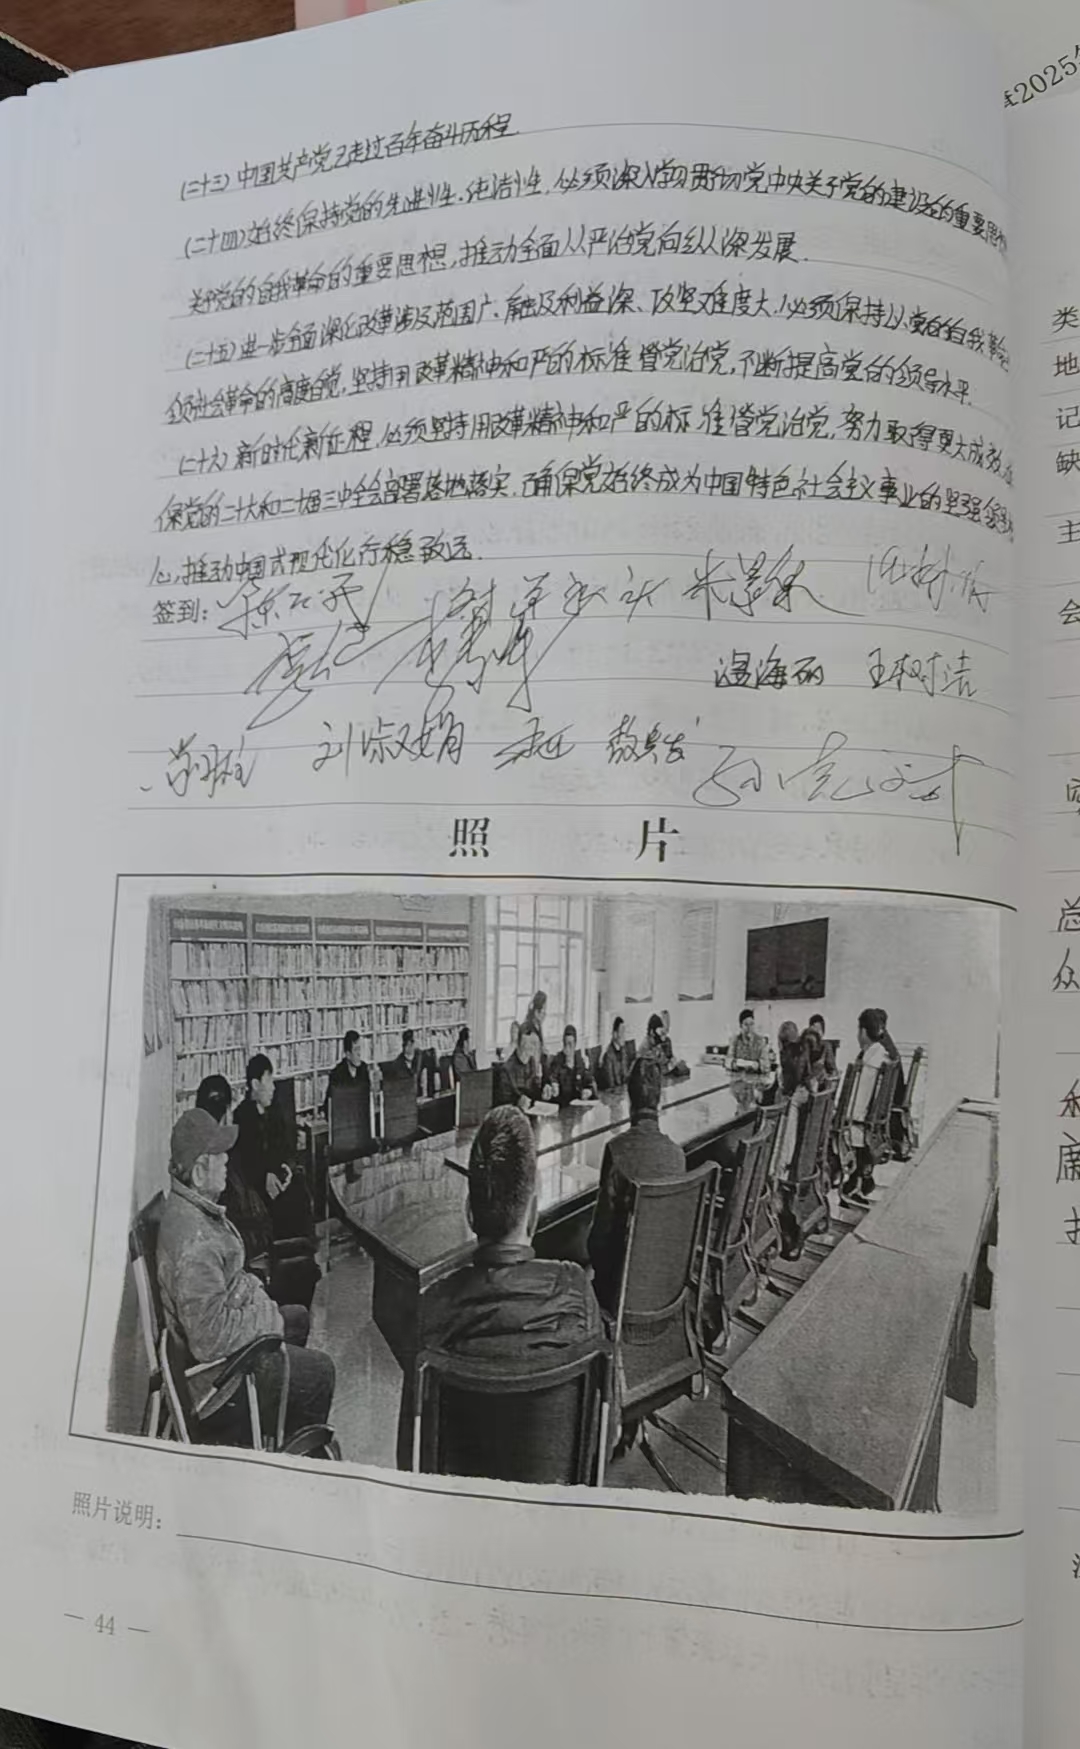 (二十三)中国共产党已走过百年奋斗历程.
(二十四)始终保持党的先进性.纯洁性,必须深入学习贯彻党中央关于党的建设的重要思想
关于党的自我革命的重要思想,推动全面从严治党向纵深发展.
(二十五)进一步全面深化改革涉及范围广、触及利益深、攻坚难度大,必须保持以党的自我革命
领社会革命的高度自觉,坚持用改革精神和严的标准管党治党,不断提高党的领导水平.
(二十六)新时代新征程,必须坚持用改革精神和严的标准管党治党,努力取得更大成效,
保党的二十大和二十届三中全会部署落地落实,确保党始终成为中国特色社会主义事业的坚强领导
心,推动中国式现代化行稳致远.
签到:
温海丽 王树洁
刘淑娟
照 片
照片说明:
— 44 —
2025
类
地
记
缺
主
会
总
众